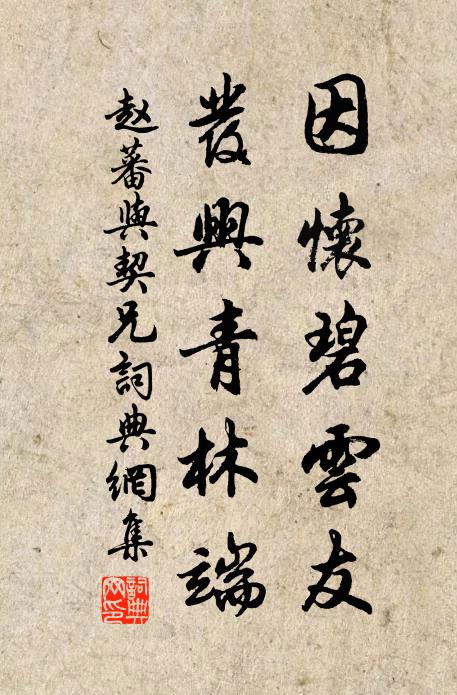 因懷碧雲友
發興青林端
赵蕃與契兄詞典網集
詞典網印